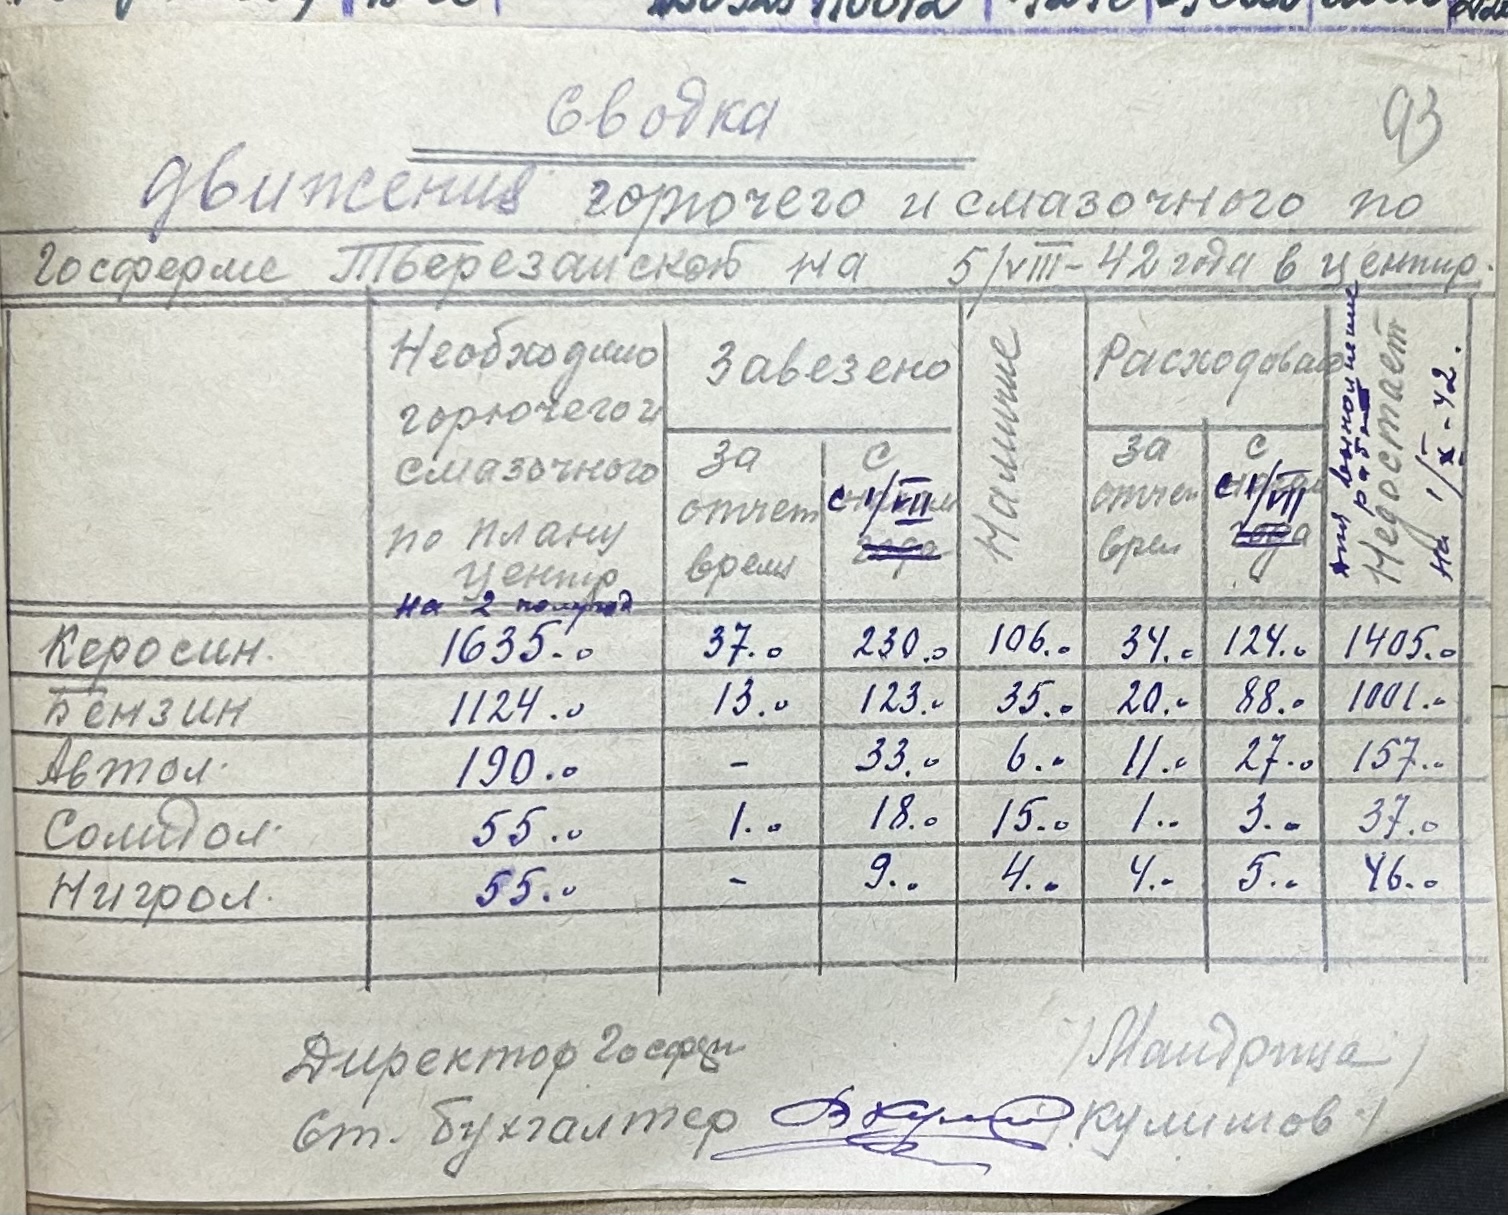 93
Сводка
движения горючего и смазочного по
Госферме Тверезанской на 5/VIII-42 года в центнр.
Необходимо горючего и смазочного по плану центр на 2 полугод
Завезено
за отчет время
с 1/VII
Наличие
Расходовано
за отчет врем
с 1/VII
Недостает для выполнение работ на 1/X-42.
Керосин. 1635.0 37.0 230.0 106.0 34.0 124.0 1405.0
Бензин 1124.0 13.0 123.0 35.0 20.0 88.0 1001.0
Автол. 190.0 - 33.0 6.0 11.0 27.0 157.0
Солидол. 55.0 1.0 18.0 15.0 1.0 3.0 37.0
Нигрол. 55.0 - 9.0 4.0 4.0 5.0 46.0
Директор Госфер /Мандрица/
Ст. бухгалтер /Кулишов/